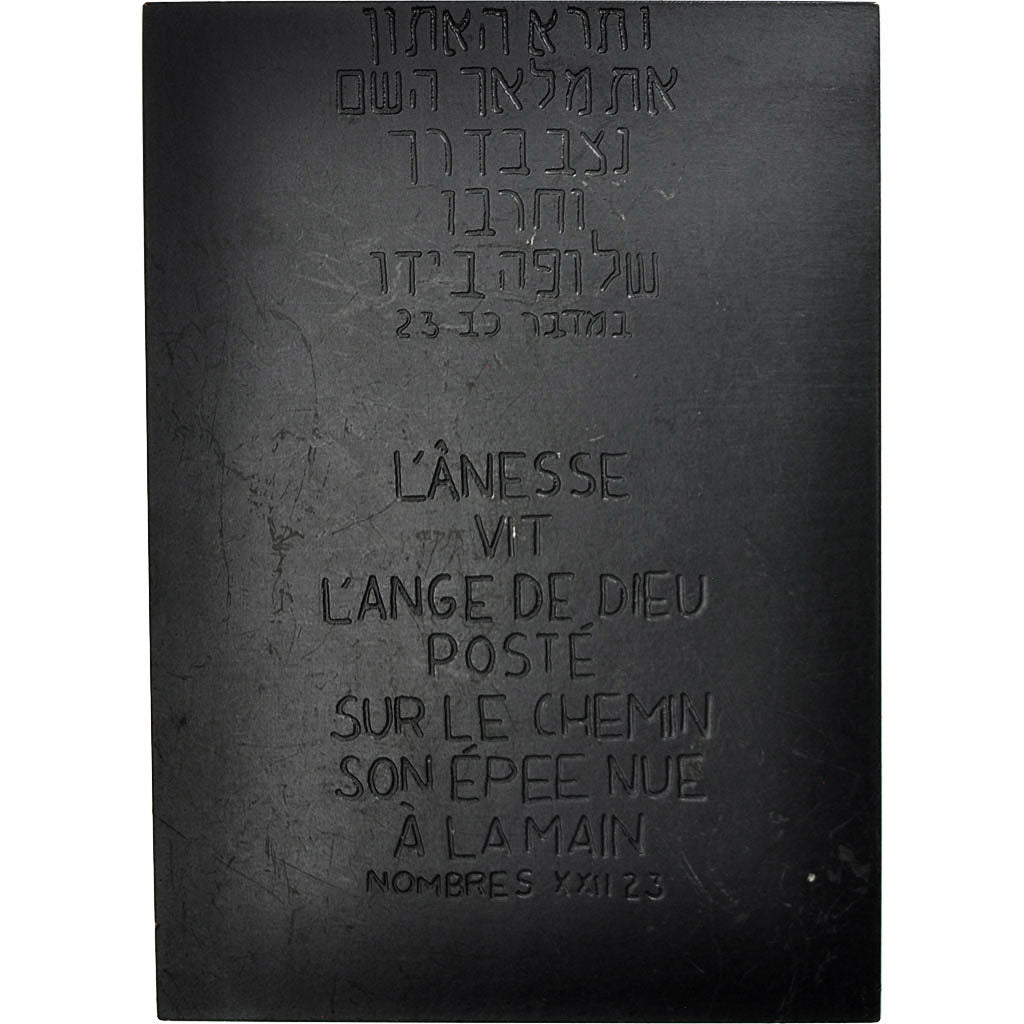 ותרא האתון
את מלאך השם
נצב בדרך
וחרבו
שלופה בידו
במדבר כב-23
L'ÂNESSE
VIT
L'ANGE DE DIEU
POSTÉ
SUR LE CHEMIN
SON ÉPEE NUE
À LA MAIN
NOMBRES XXII 23